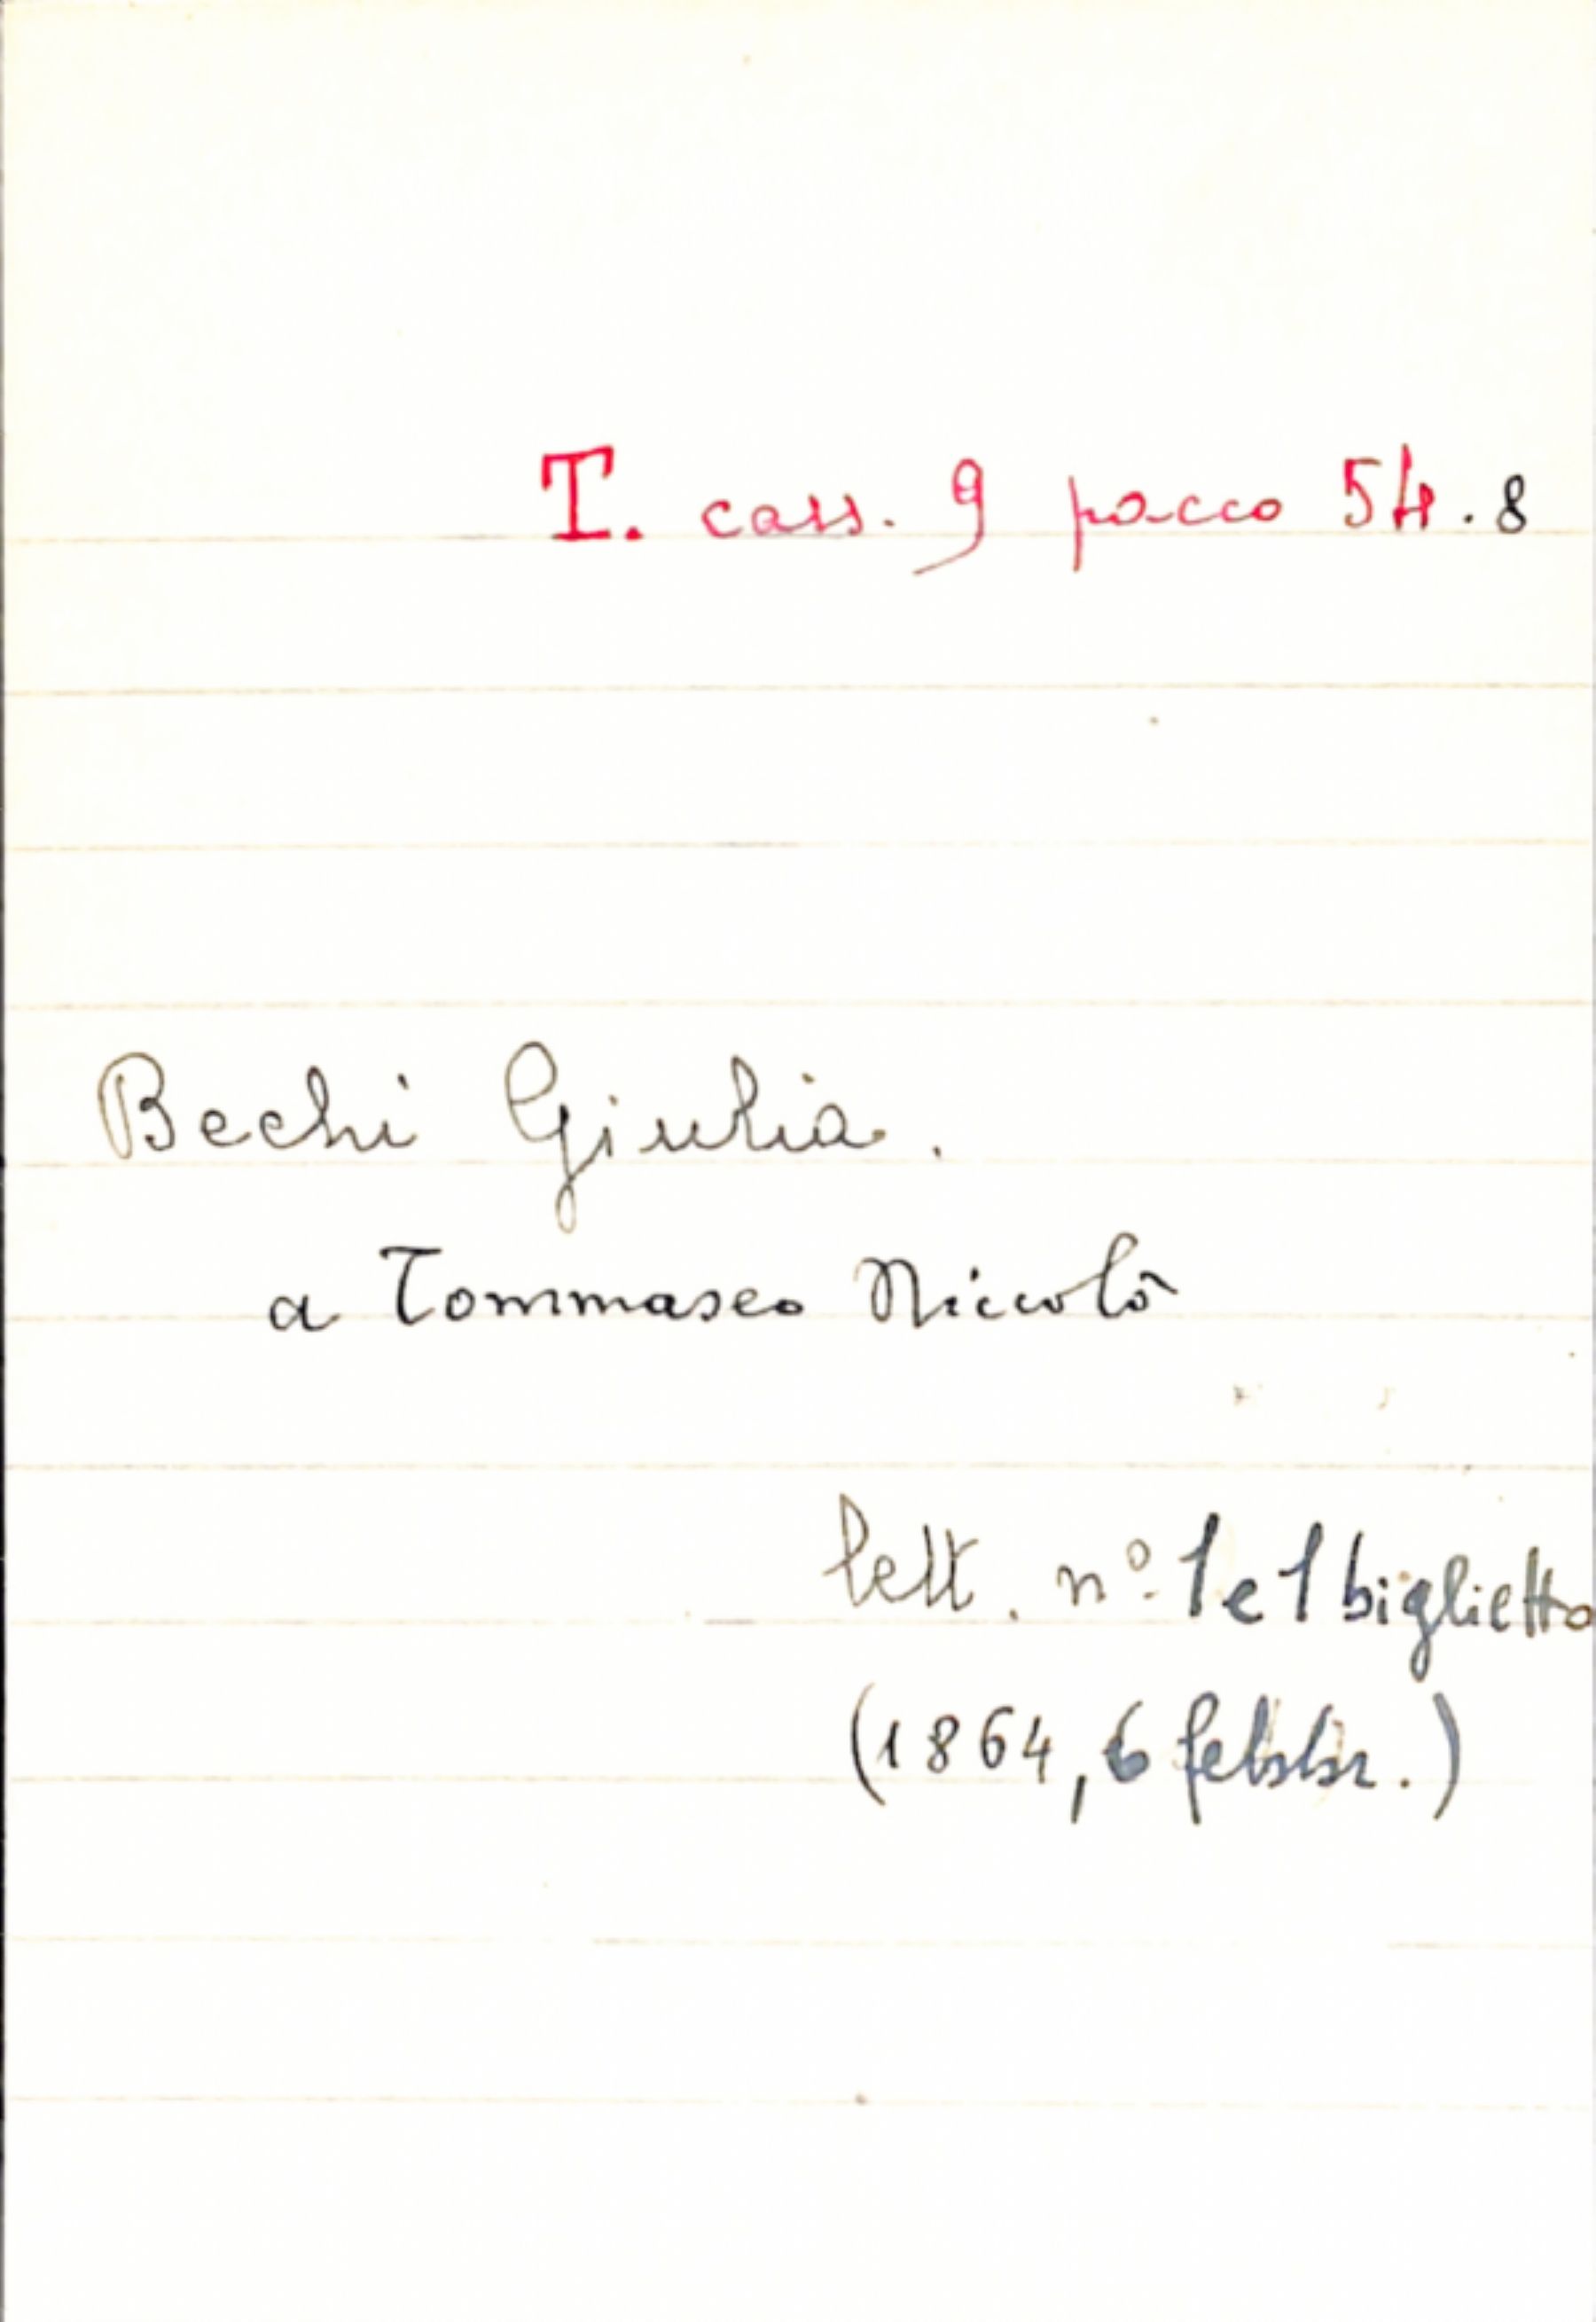 T. cass. 9 pacco 54.8
Bechi Giulia.
a Tommaseo Niccolò
lett. nº. 1 e 1 biglietto
(1864, 6 febbr.)